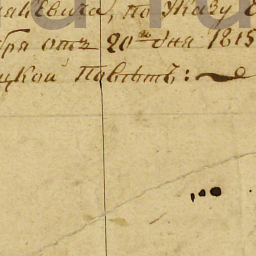 по Указу
бря отъ 20го дня 1815
цкой Повѣтъ: